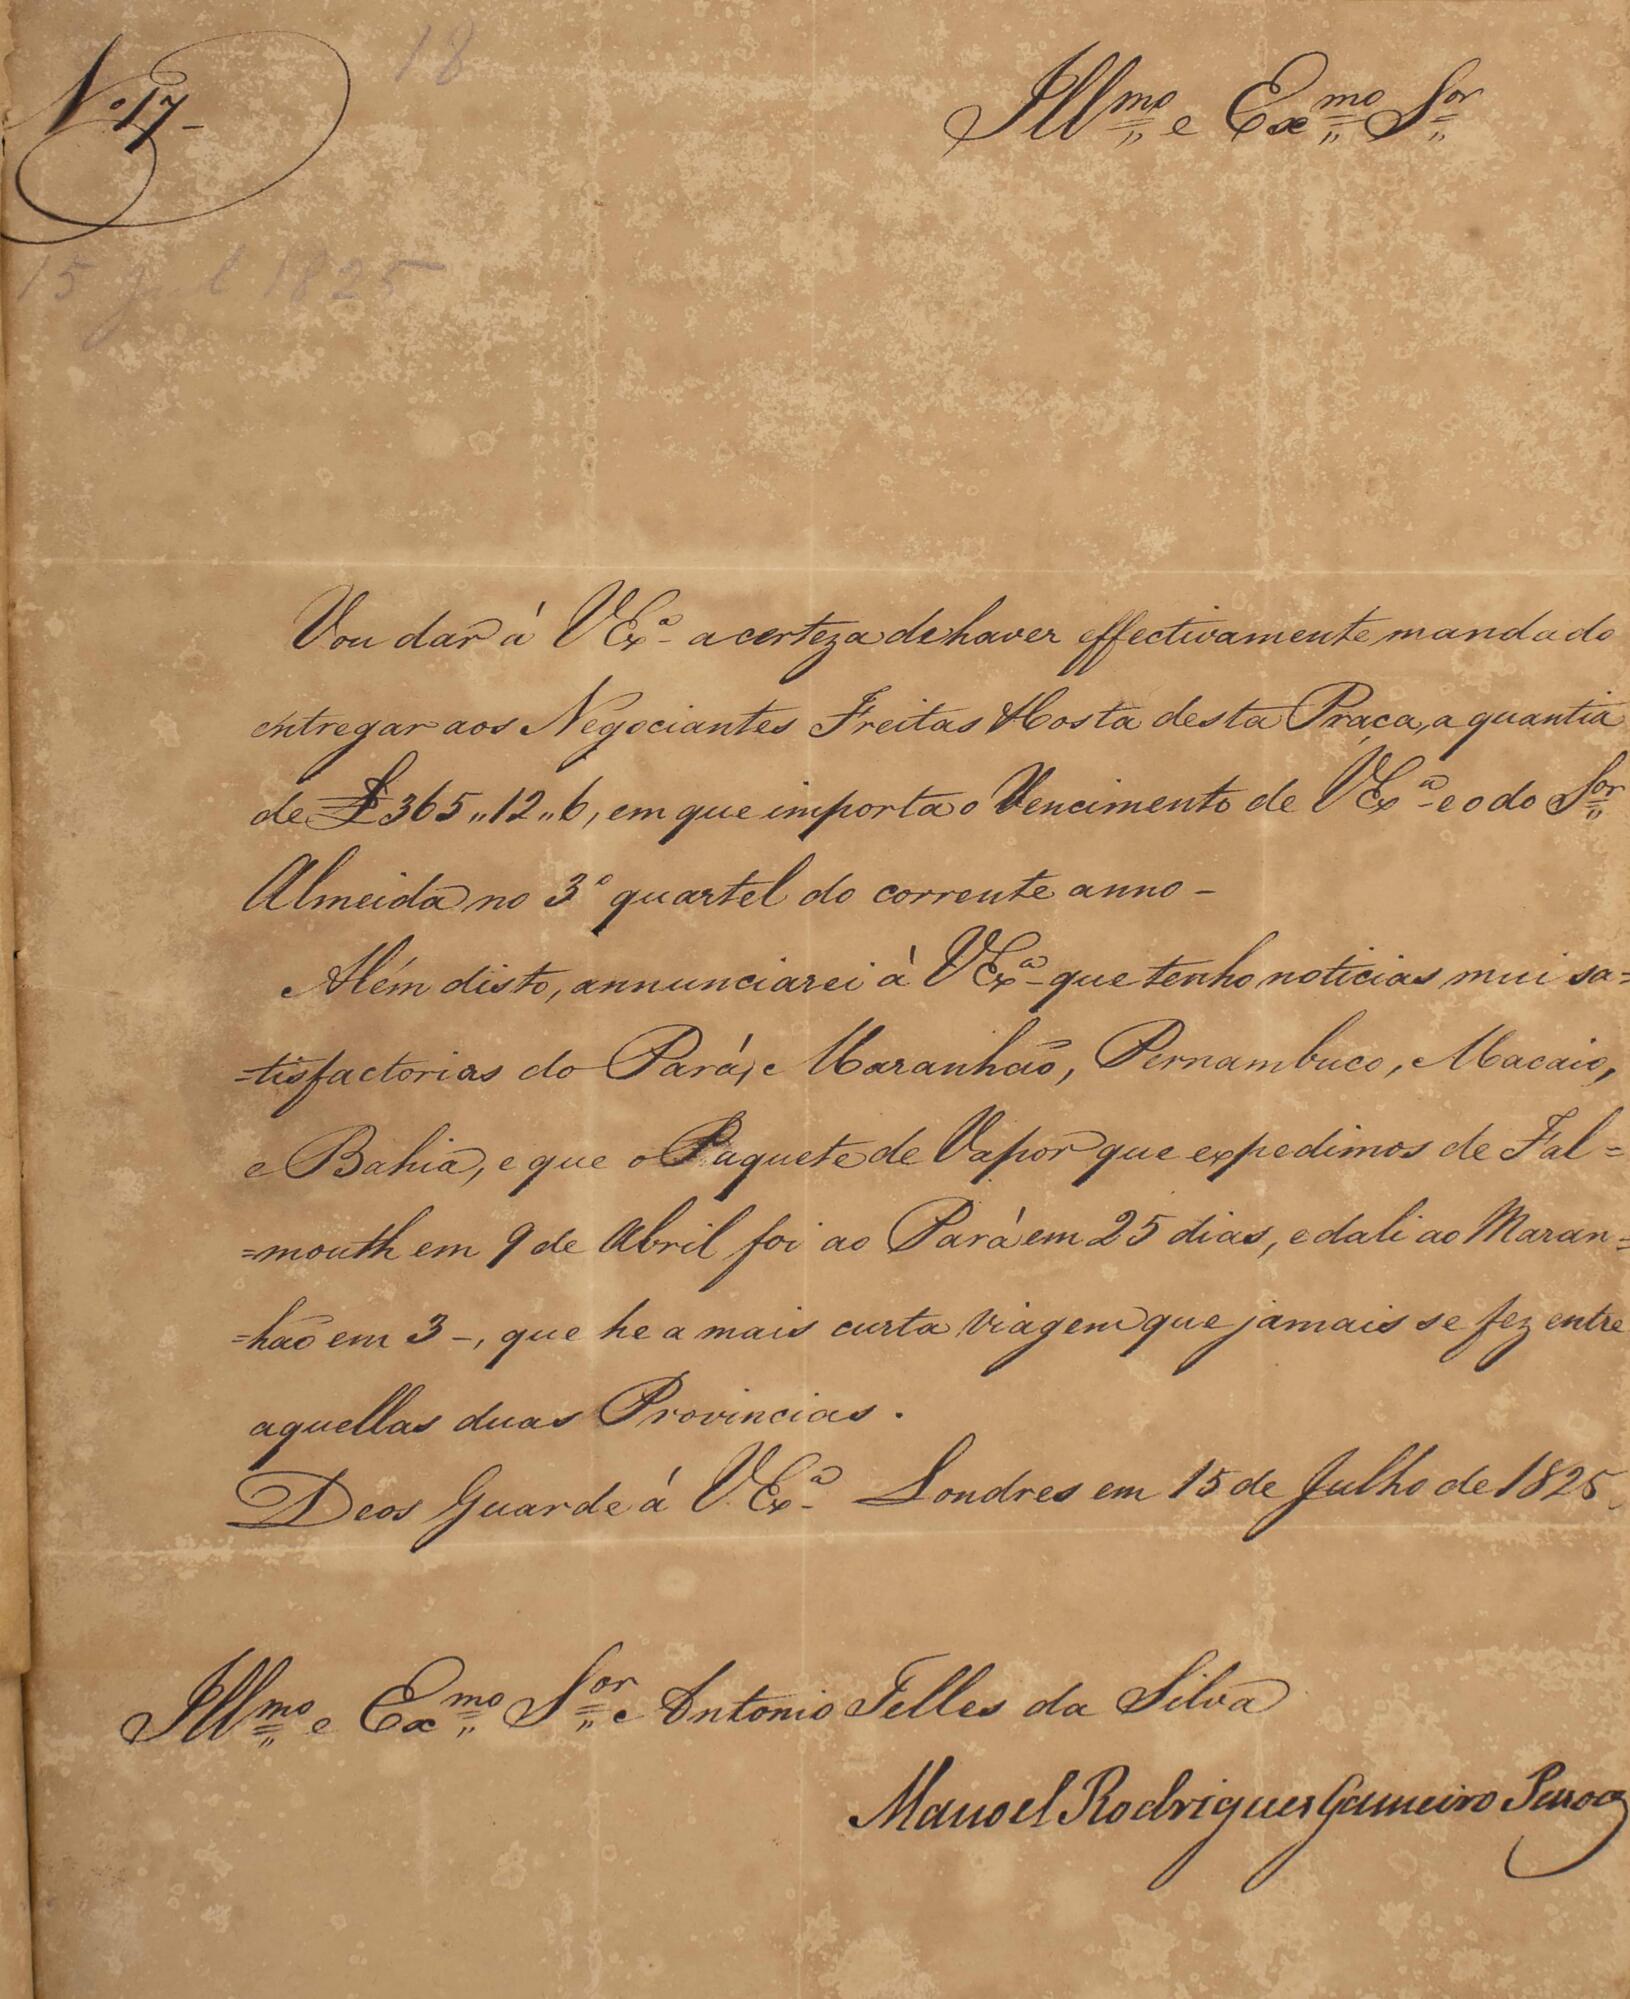 18
Nº 17-
Illmo e Exmo Sor
15 Jul 1825
Vou dar á VExª a certeza de haver effectivamente mandado
entregar aos Negociantes Freitas & Costa desta Praça, a quantia
de £365,,12,,6, em que importa o Vencimento de VExª e o do Sor
Almeida no 3º quartel do corrente anno -
Além disto, annunciarei á VExª que tenho noticias mui sa=
=tisfactorias do Pará, e Maranhão, Pernambuco, Macaio,
e Bahia, e que o Paquete de Vapor que expedimos de Fal=
=mouth em 9 de Abril foi ao Pará em 25 dias, e dali ao Maran=
=hão em 3 -, que he a mais curta viagem que jamais se fez entre
aquellas duas Provincias.
Deos Guarde á VExª Londres em 15 de Julho de 1825.
Illmo e Exmo Sor Antonio Telles da Silva
Manoel Rodrigues Gameiro Pessoa